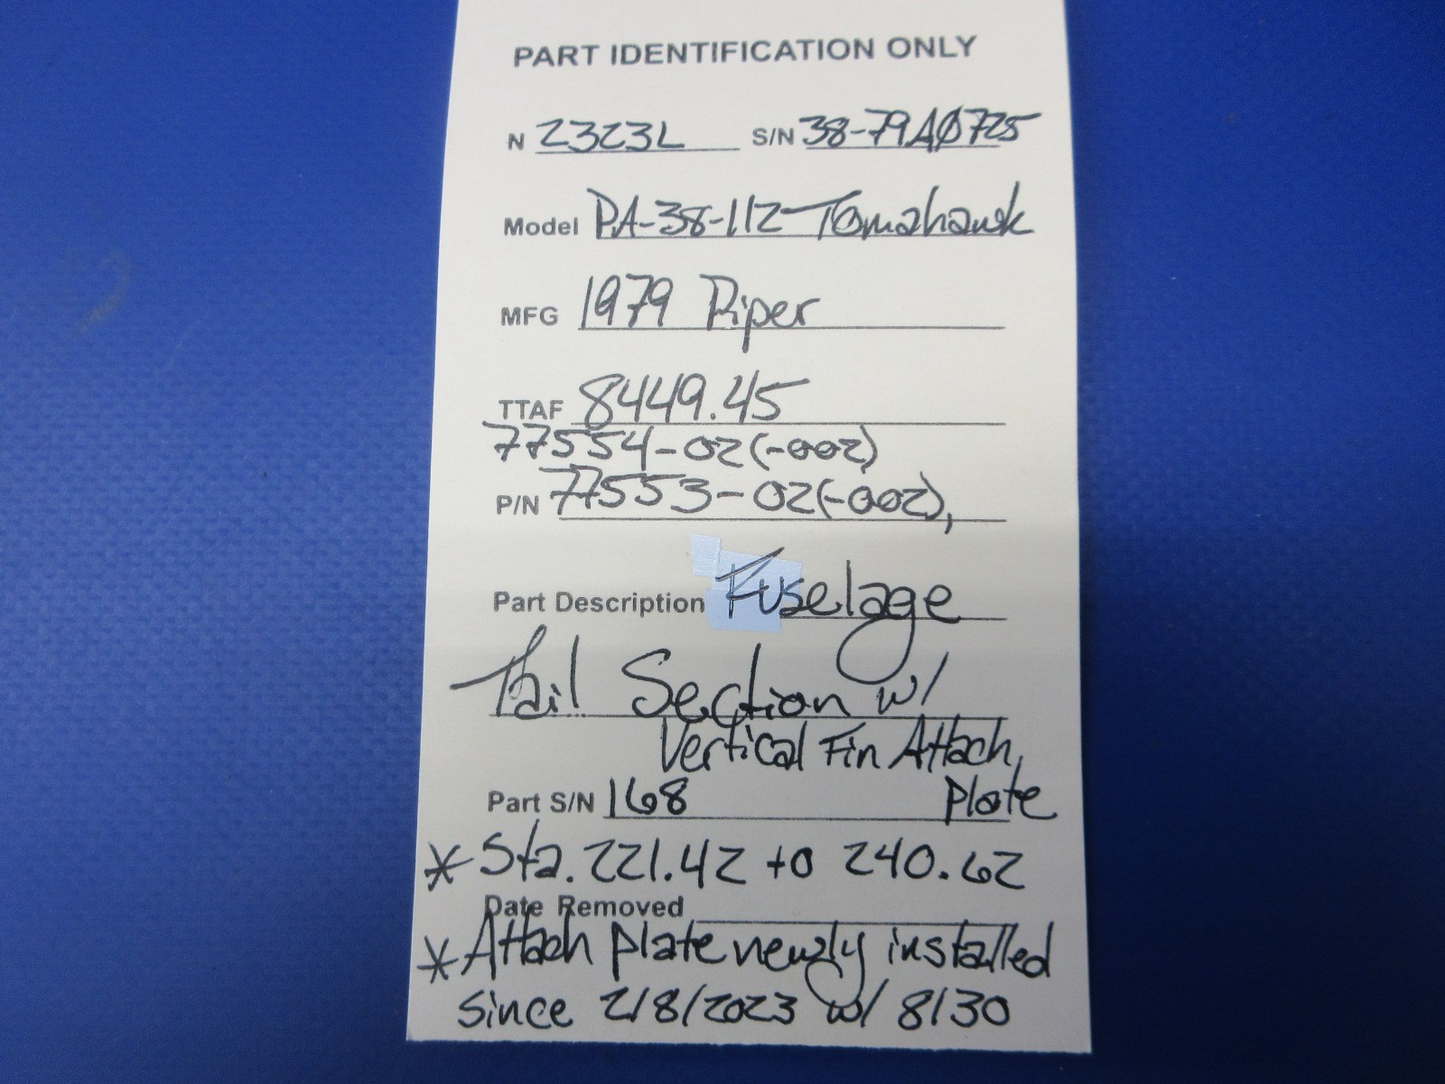 PART IDENTIFICATION ONLY
N 2323L S/N 38-79A0725
Model PA-38-112 Tomahawk
MFG 1979 Piper
TTAF 8449.45
77554-02(-002)
P/N 77553-02(-002),
Part Description Fuselage
Tail Section w/
Vertical Fin Attach
Plate
Part S/N 168
* Sta. 221.42 to 240.62
Date Removed
* Attach plate newly installed
since 2/8/2023 w/ 8130